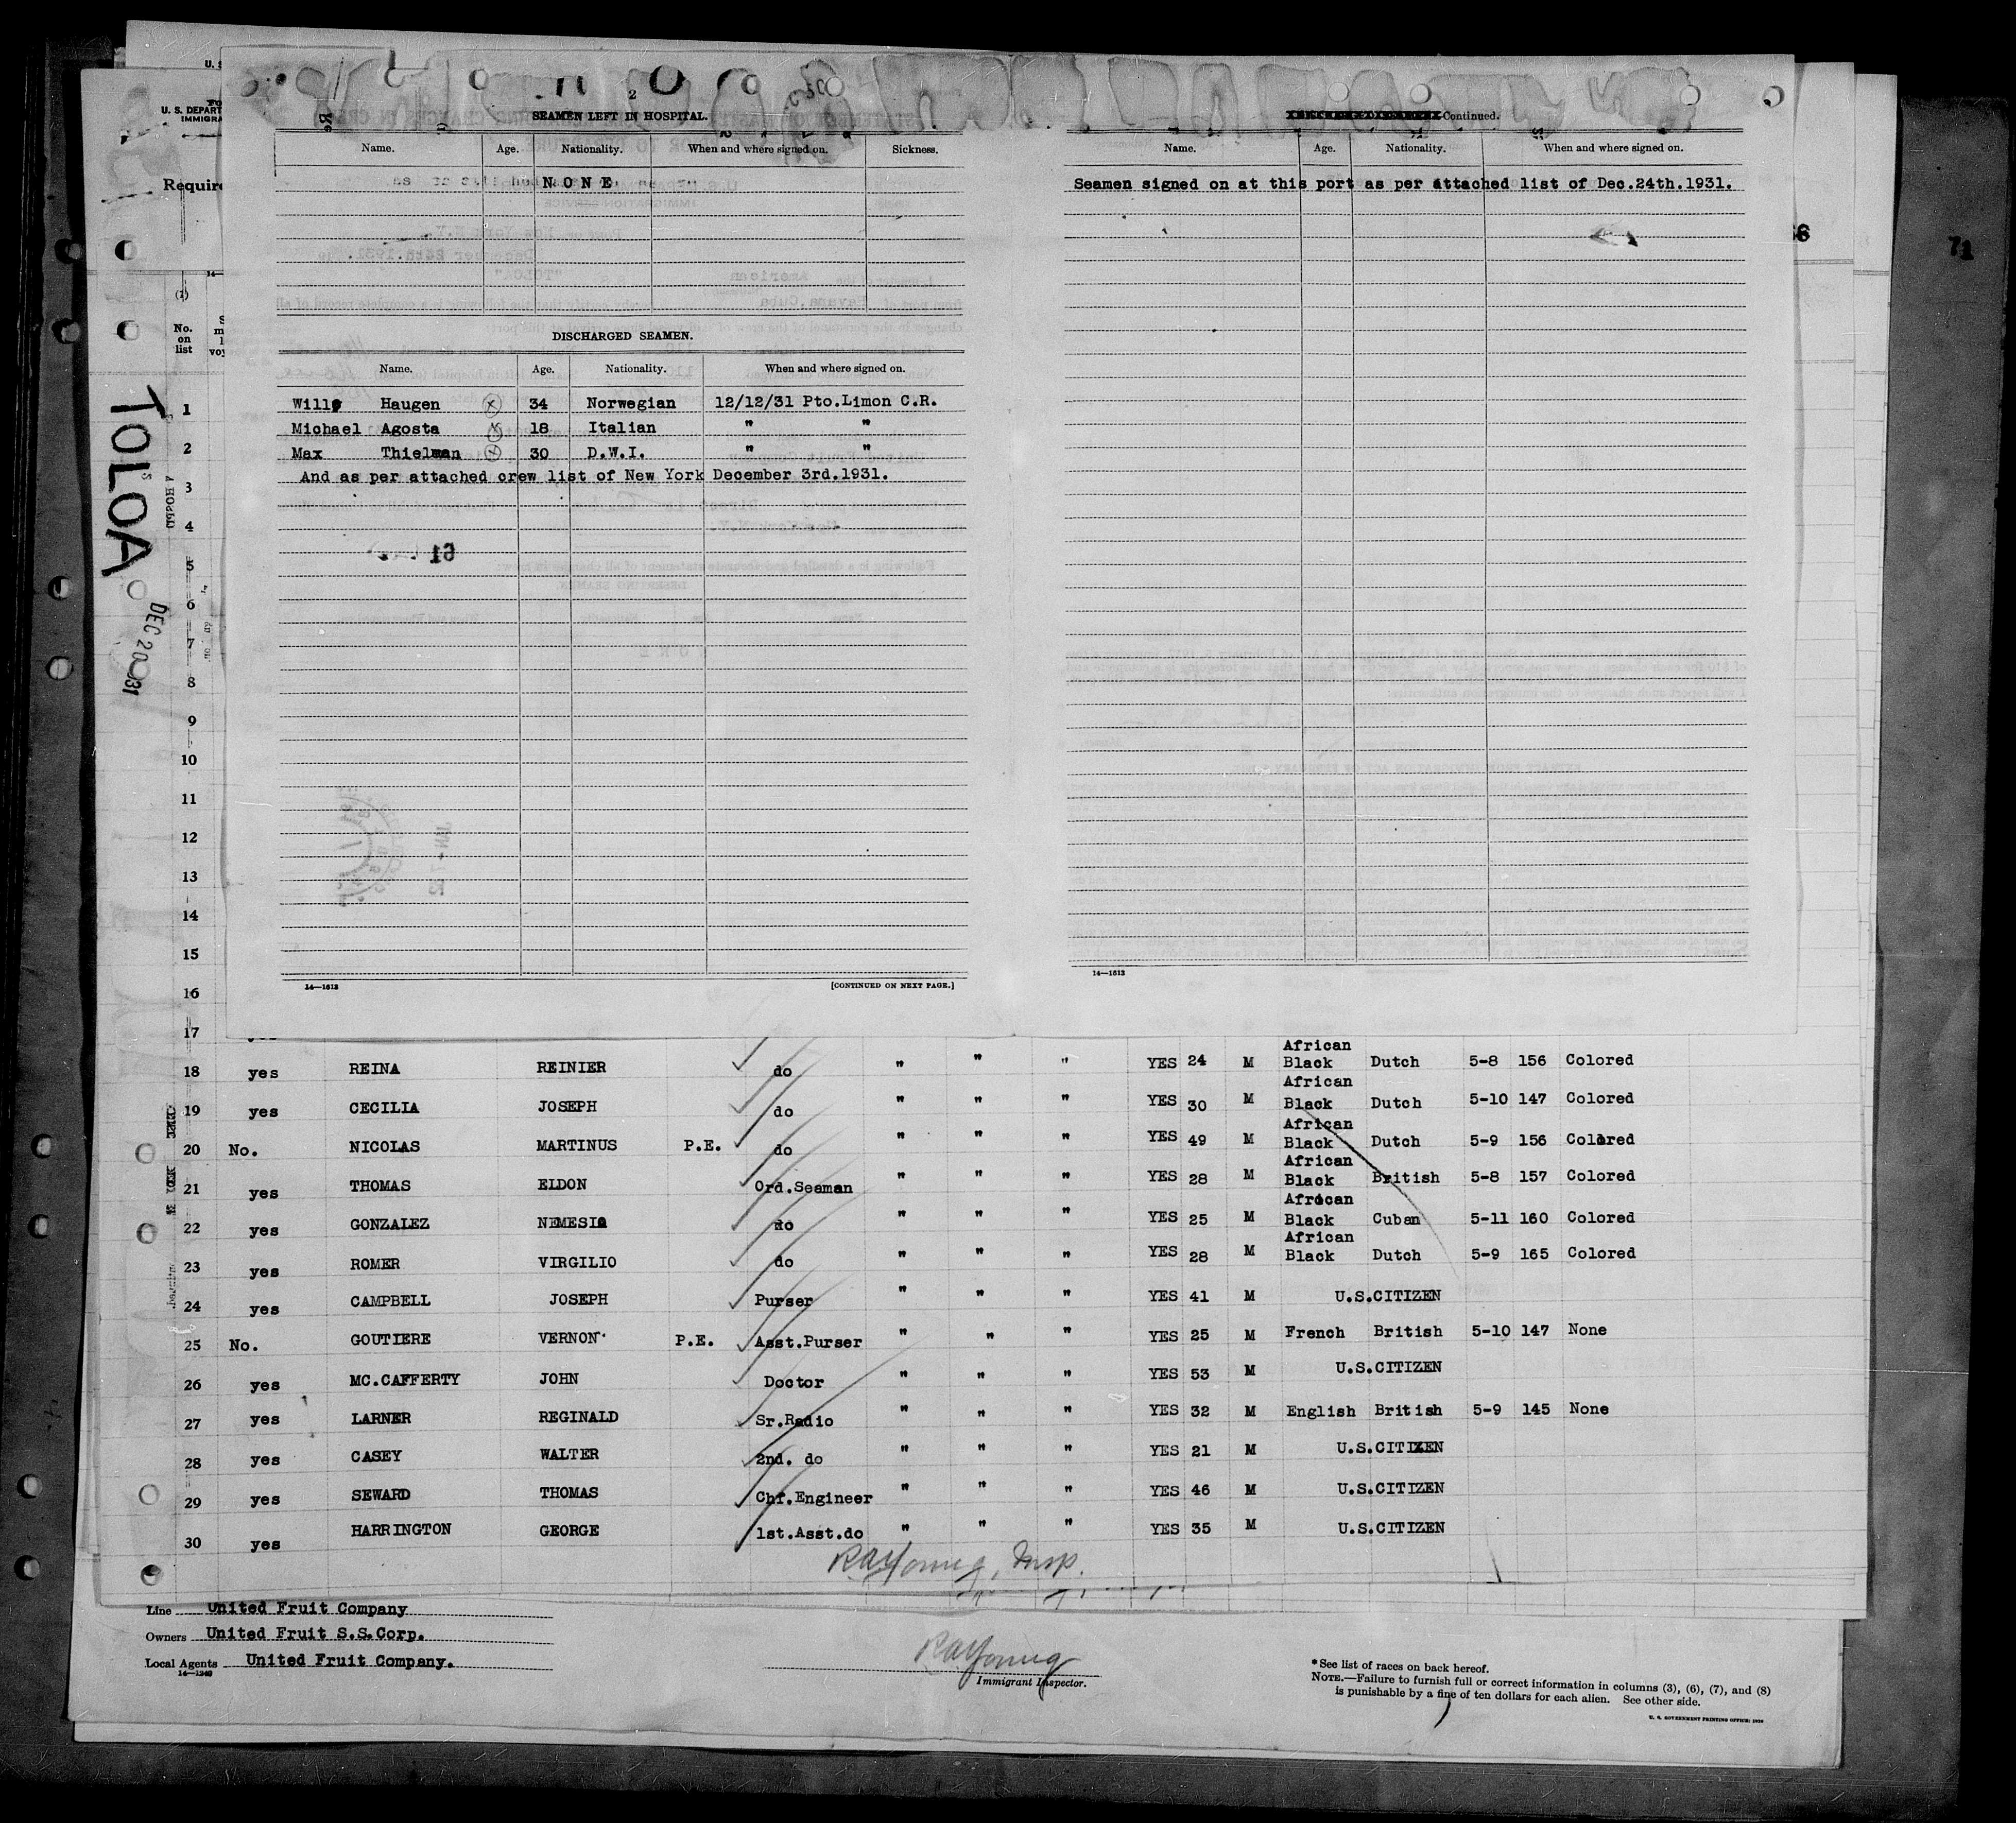 2
SEAMEN LEFT IN HOSPITAL.
Name. Age. Nationality. When and where signed on. Sickness.
NONE
DISCHARGED SEAMEN.
Name. Age. Nationality. When and where signed on.
Haugen 34 Norwegian 12/12/31 Pto.Limon C.R.
Michael Agosta 18 Italian " "
Max Thielman 30 D.W.I. " "
And as per attached crew list of New York December 3rd.1931.
14—1613 [CONTINUED ON NEXT PAGE.]
Continued.
Name. Age. Nationality. When and where signed on.
Seamen signed on at this port as per attached list of Dec.24th.1931.
14—1613
71
U. S. DEPART
IMMIGRA
Require
(1)
No. on list
TOLOA
DEC 20 31
1
2
3
4
5
6
7
8
9
10
11
12
13
14
15
16
17
18 yes REINA REINIER do " " " YES 24 M African Black Dutch 5-8 156 Colored
19 yes CECILIA JOSEPH do " " " YES 30 M African Black Dutch 5-10 147 Colored
20 No. NICOLAS MARTINUS P.E. do " " " YES 49 M African Black Dutch 5-9 156 Colored
21 yes THOMAS ELDON Ord.Seaman " " " YES 28 M African Black British 5-8 157 Colored
22 yes GONZALEZ NEMESIO do " " " YES 25 M African Black Cuban 5-11 160 Colored
23 yes ROMER VIRGILIO do " " " YES 28 M African Black Dutch 5-9 165 Colored
24 yes CAMPBELL JOSEPH Purser " " " YES 41 M U.S.CITIZEN
25 No. GOUTIERE VERNON P.E. Asst.Purser " " " YES 25 M French British 5-10 147 None
26 yes MC.CAFFERTY JOHN Doctor " " " YES 53 M U.S.CITIZEN
27 yes LARNER REGINALD Sr.Radio " " " YES 32 M English British 5-9 145 None
28 yes CASEY WALTER 2nd. do " " " YES 21 M U.S.CITIZEN
29 yes SEWARD THOMAS Chf.Engineer " " " YES 46 M U.S.CITIZEN
30 yes HARRINGTON GEORGE 1st.Asst.do " " " YES 35 M U.S.CITIZEN
RAYoung, Insp.
Line United Fruit Company
Owners United Fruit S.S.Corp.
Local Agents United Fruit Company.
14—1240
RAYoung
Immigrant Inspector.
* See list of races on back hereof.
NOTE.—Failure to furnish full or correct information in columns (3), (6), (7), and (8)
is punishable by a fine of ten dollars for each alien. See other side.